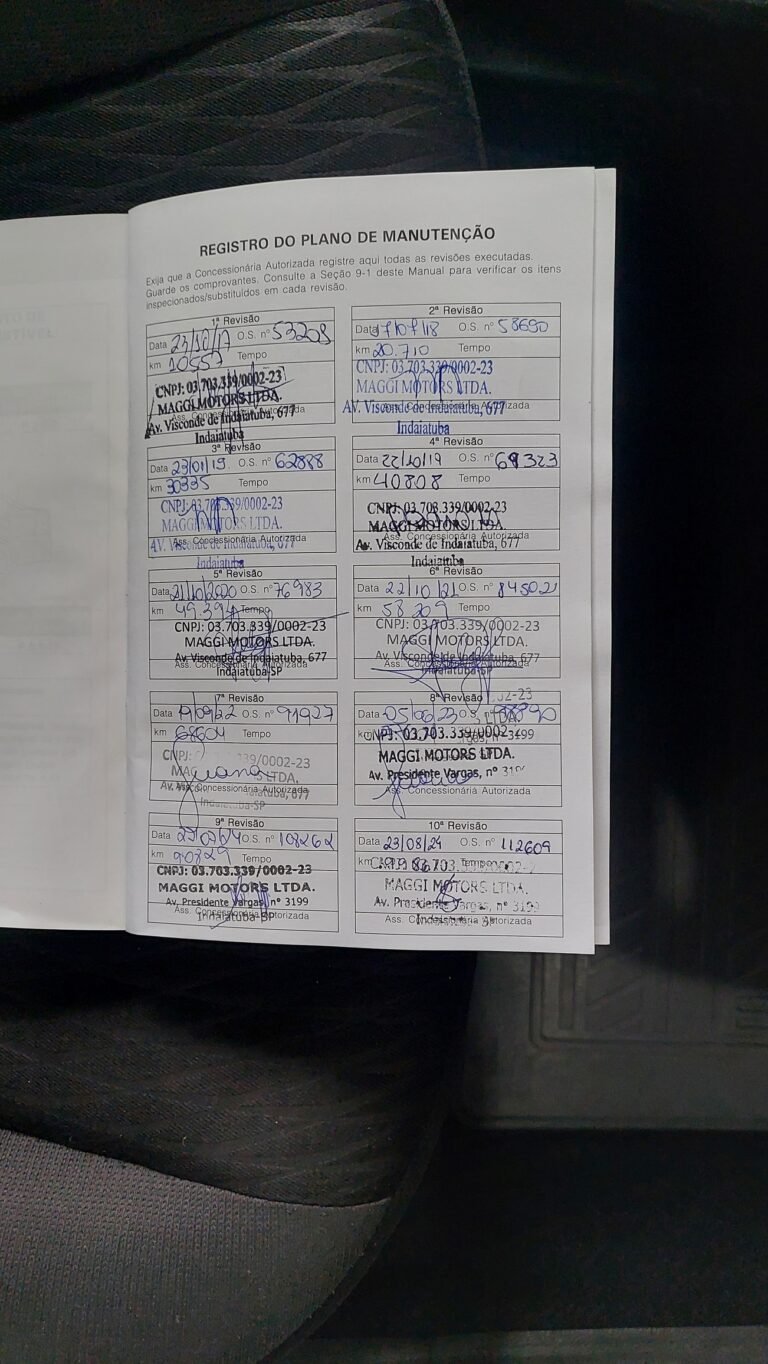 REGISTRO DO PLANO DE MANUTENÇÃO
Exija que a Concessionária Autorizada registre aqui todas as revisões executadas.
Guarde os comprovantes. Consulte a Seção 9-1 deste Manual para verificar os itens
inspecionados/substituídos em cada revisão.
1ª Revisão
Data 23/10/17 O.S. nº 53208
km 10557 Tempo
CNPJ: 03.703.339/0002-23
MAGGI MOTORS LTDA.
Ass. Concessionária Autorizada
Av. Visconde de Indaiatuba, 677
Indaiatuba
2ª Revisão
Data O.S. nº 58690
km 20.710 Tempo
CNPJ: 03.703.339/0002-23
MAGGI MOTORS LTDA.
Ass. Concessionária Autorizada
AV. Visconde de Indaiatuba, 677
Indaiatuba
3ª Revisão
Data 23/01/19 O.S. nº 62888
km 30335 Tempo
CNPJ: 03.703.339/0002-23
MAGGI MOTORS LTDA.
Ass. Concessionária Autorizada
AV. Visconde de Indaiatuba, 677
Indaiatuba
4ª Revisão
Data 22/10/19 O.S. nº 69323
km 40808 Tempo
CNPJ: 03.703.339/0002-23
MAGGI MOTORS LTDA.
Ass. Concessionária Autorizada
Av. Visconde de Indaiatuba, 677
Indaiatuba
5ª Revisão
Data 21/10/2020 O.S. nº 76983
km 49.394 Tempo
CNPJ: 03.703.339/0002-23
MAGGI MOTORS LTDA.
Av. Visconde de Indaiatuba, 677
Ass. Concessionária Autorizada
Indaiatuba-SP
6ª Revisão
Data 22/10/21 O.S. nº
km 58.209 Tempo
CNPJ: 03.703.339/0002-23
MAGGI MOTORS LTDA.
Av. Visconde de Indaiatuba, 677
Ass. Concessionária Autorizada
Indaiatuba-SP
7ª Revisão
Data 19/09/22 O.S. nº 91927
km 68604 Tempo
CNPJ: 03.703.339/0002-23
MAGGI MOTORS LTDA.
Ass. Concessionária Autorizada
Indaiatuba-SP
8ª Revisão
Data 05/06/23 O.S. nº
km
CNPJ: 03.703.339/0002-
MAGGI MOTORS LTDA.
Av. Presidente Vargas, nº 3199
Ass. Concessionária Autorizada
9ª Revisão
Data O.S. nº 108262
km 90829 Tempo
CNPJ: 03.703.339/0002-23
MAGGI MOTORS LTDA.
Av. Presidente Vargas, nº 3199
Ass. Concessionária Autorizada
Indaiatuba-SP
10ª Revisão
Data 23/08/24 O.S. nº 112609
km Tempo
MAGGI MOTORS LTDA.
Av. Presidente Vargas, nº 3199
Ass. Concessionária Autorizada